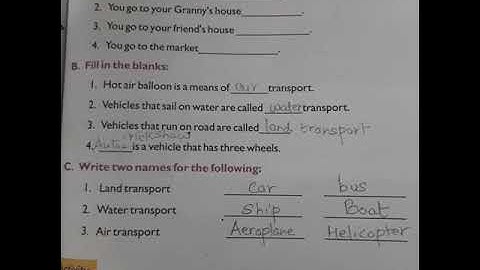 2. You go to your Granny's house____________.
3. You go to your friend's house ____________.
4. You go to the market____________.
B. Fill in the blanks:
1. Hot air balloon is a means of air transport.
2. Vehicles that sail on water are called water transport.
3. Vehicles that run on road are called land transport
rickshaw
4. Auto is a vehicle that has three wheels.
C. Write two names for the following:
1. Land transport car bus
2. Water transport Ship Boat
3. Air transport Aeroplane Helicopter